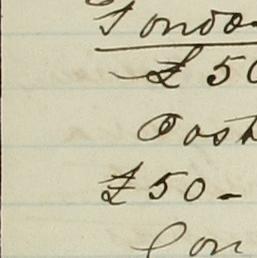 Londo
£50
Cost
£50-
Con